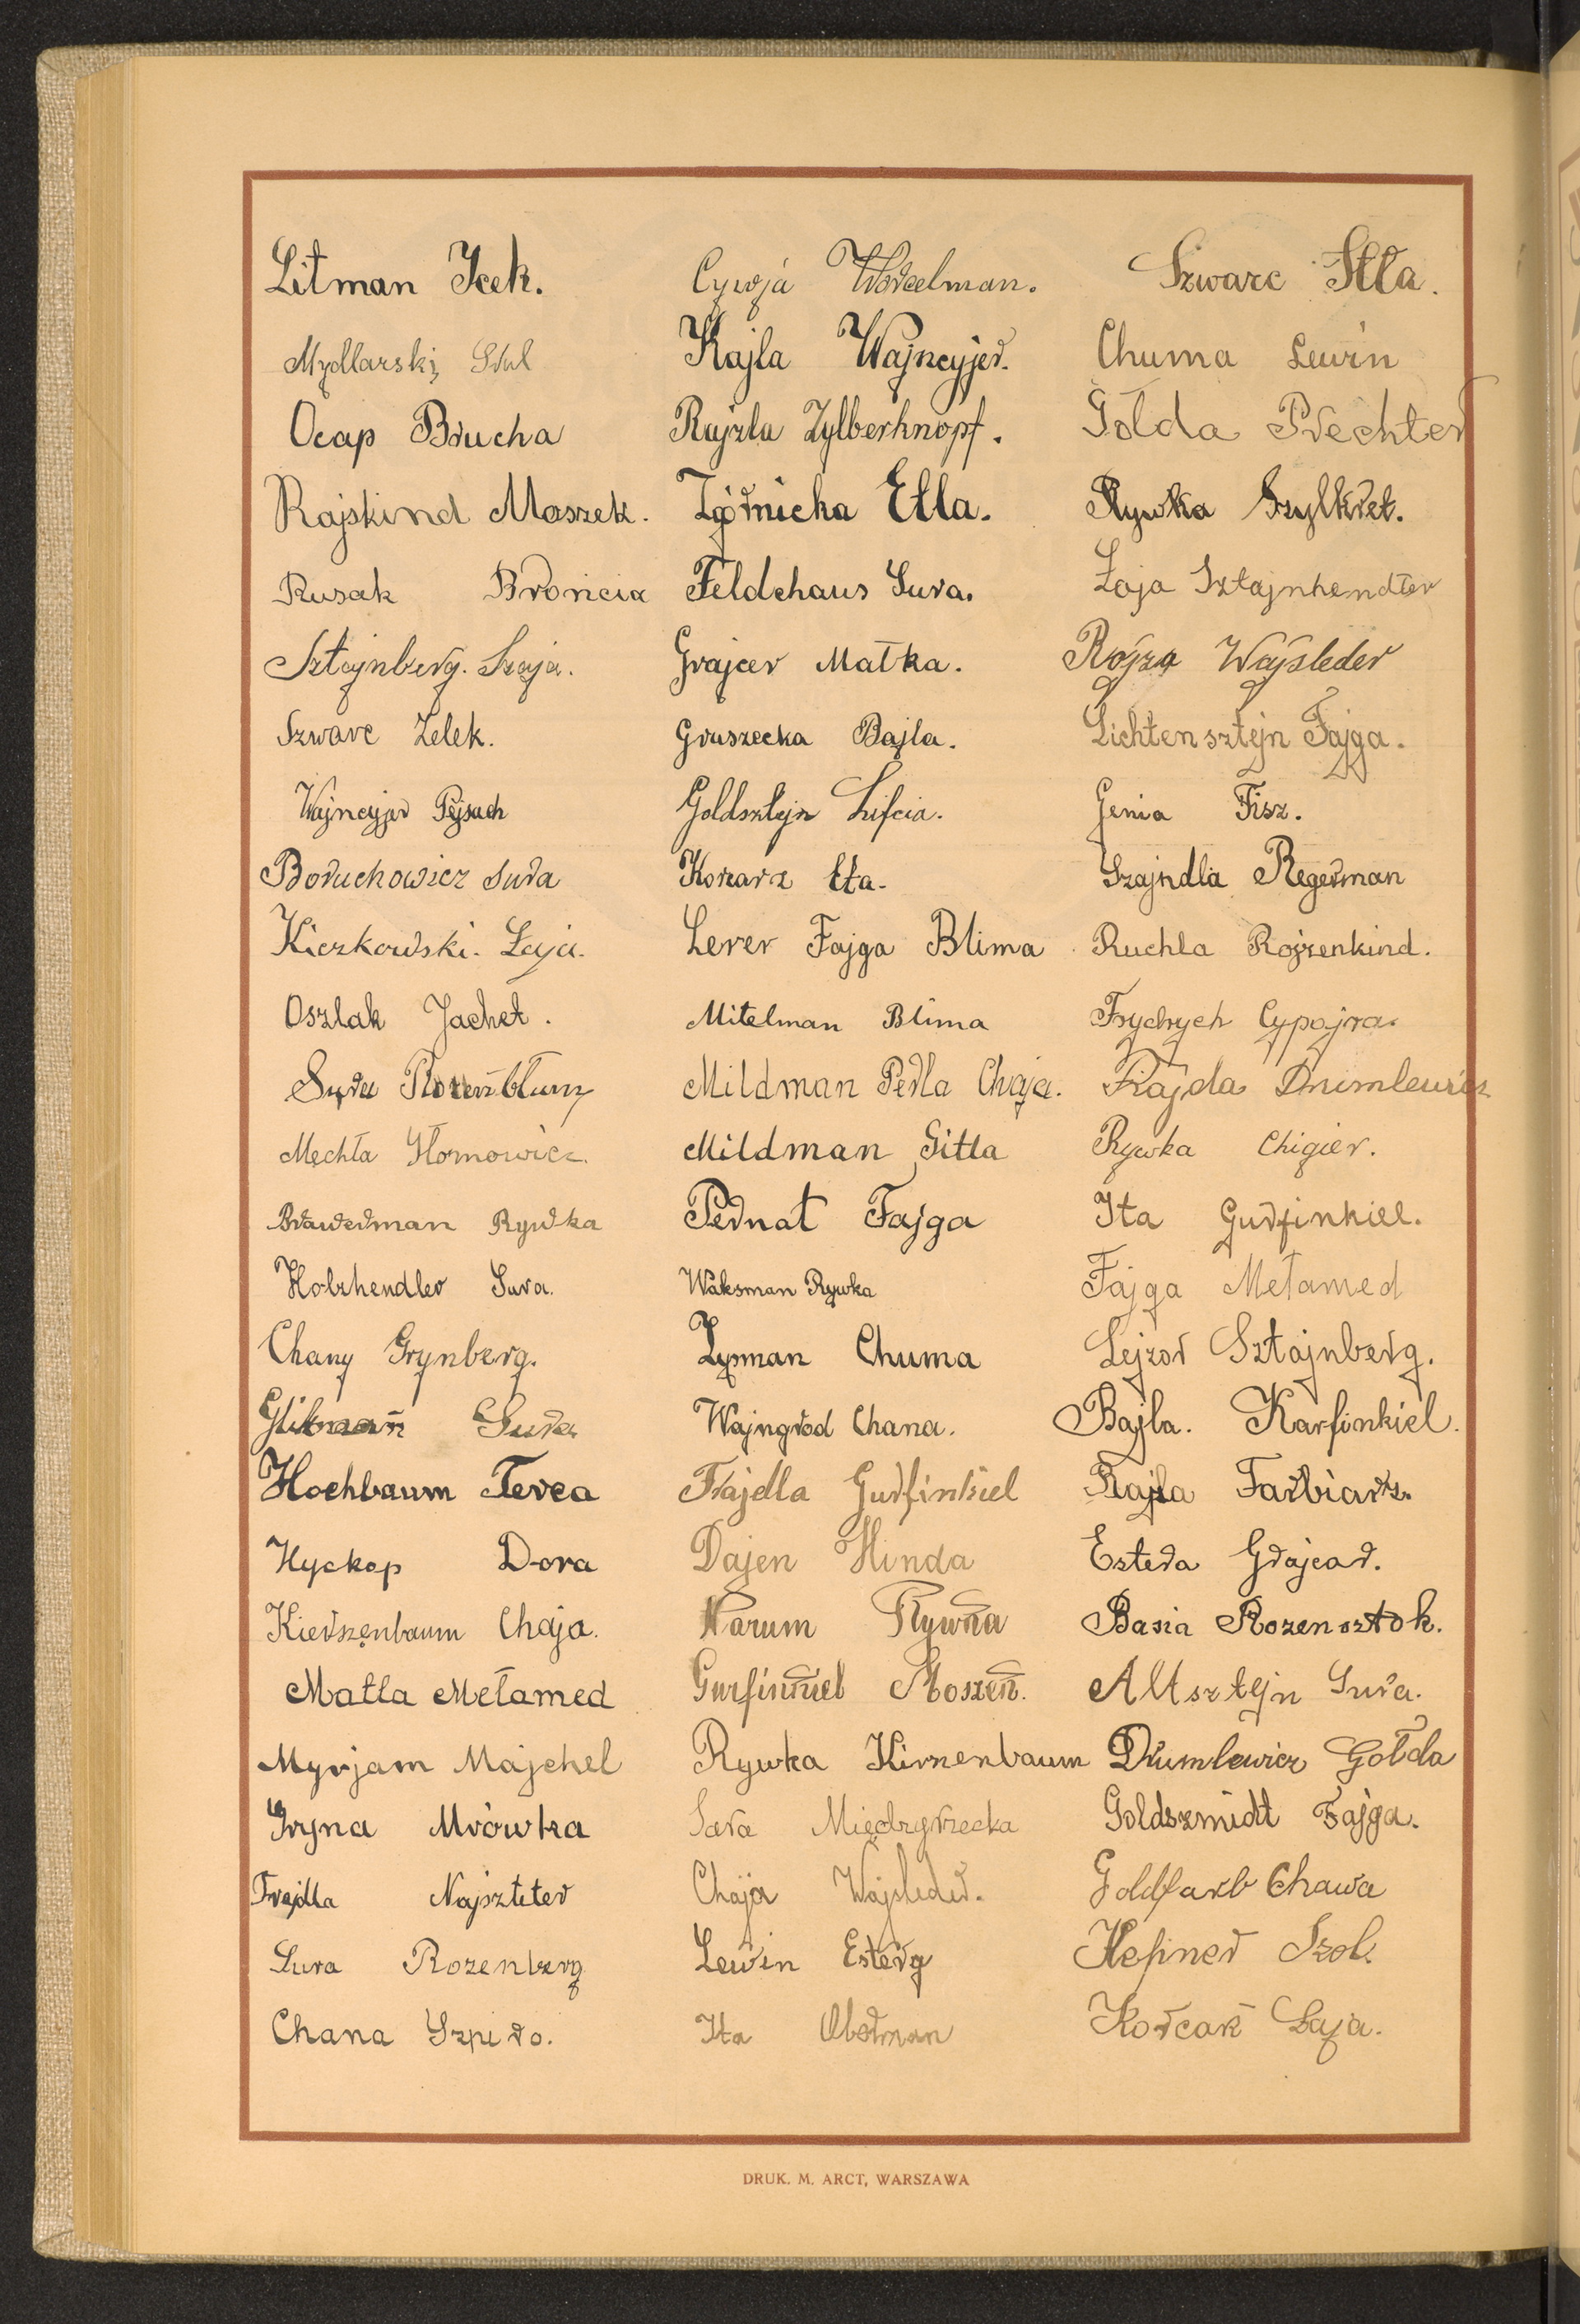 Litman Icek.
Mydlarski, Srul
Ocap Brucha
Rajskind Moszek.
Rusak Broncia
Sztejnberg. Szaja.
Szwarc Zelek.
Wajncyjer Pejsach
Boruchowicz Sura
Kiczkowski. Łaja.
Oszlak Jachet.
Sura Rozenblum
Mechla
Brawerman Rywka
Holzhendler Sura.
Chany Grynberg.
Glikman Sura
Hochbaum Terca
Hyckop Dora
Kierszenbaum Chaja.
Matla Metamed
Myrjam Majchel
Gryna Mrówka
Frajdla Najszteter
Sura Rozenberg
Chana Szpiro.
Cywja Worcelman.
Kajla Wajncyjer.
Rajzla Zylberknopf.
Zgórnicka Etla.
Feldchaus Sura.
Grajcer Małka.
Gruszecka Bajla.
Goldsztejn Lifcia.
Korarz Eta.
Lerer Fajga Blima
Mitelman Blima
Mildman Perla Chaja.
Mildman Gitla
Pernat Fajga
Waksman Rywka
Zysman Chuma
Wajngrod Chana.
Frajdla Gurfinkiel
Dajen Hinda
Warum Rywka
Gurfinkiel Moszek.
Rywka Kirzenbaum
Sara Międzyrzecka
Chaja Wajsleder.
Lewin Estery
Ita Oberman
Szwarc Itta.
Chuma Lewin
Gołda Prechter
Rywka Szylkret.
Łaja Sztajnhendler
Rojza Wajsleder
Lichtensztejn Fajga.
Genia Fisz.
Szajndla Regerman
Ruchla Rojzenkind.
Frydrych Cypojra.
Frajda Drumlewicz
Rywka Chigier.
Ita Gurfinkiel.
Fajga Metamed
Lejzor Sztajnberg.
Bajla. Karfinkiel.
Rajla Farbiarz.
Estera Grajcar.
Basia Rozensztok.
Altsztejn Sura.
Drumlewicz Gołda
Goldszmidt Fajga.
Goldfarb Chawa
Hefner Szol.
Korcak Łaja.
DRUK. M. ARCT, WARSZAWA